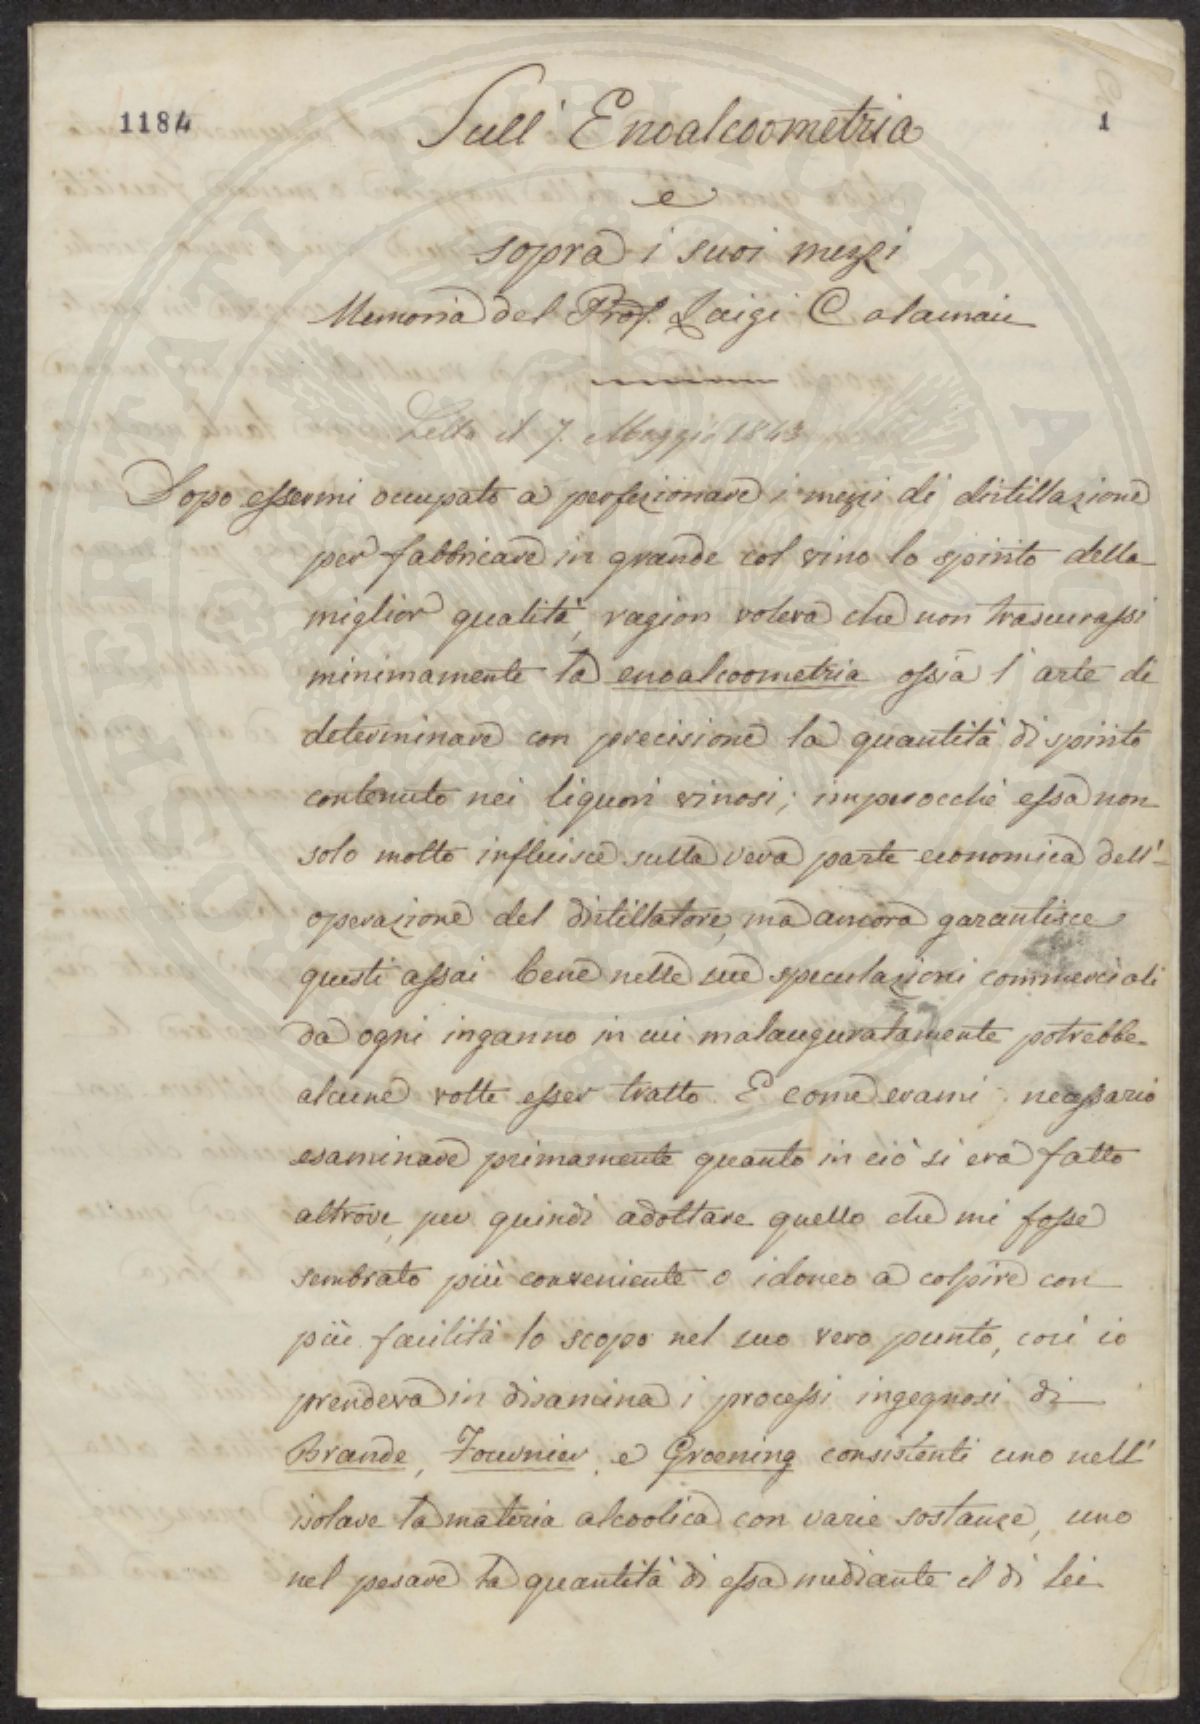 1184
1
Sull' Enoalcoometria
e
sopra i suoi mezzi
Memoria del Prof. Luigi Calamai
Letta il 7. Maggio 1843
Dopo essermi occupato a perfezionare i mezzi di distillazione
per fabbricare in grande col vino lo spirito della
miglior qualità, ragion voleva che non trascurassi
minimamente la enoalcoometria ossia l'arte di
determinare con precisione la quantità di spirito
contenuto nei liquori vinosi; imperocchè essa non
solo molto influisce sulla vera parte economica dell'
operazione del distillatore, ma ancora garantisce
questi assai bene nelle sue speculazioni commerciali
da ogni inganno in cui malauguratamente potrebbe
alcune volte esser tratto. E come erami necessario
esaminare primamente quanto in ciò si era fatto
altrove, per quindi adottare quello che mi fosse
sembrato più conveniente o idoneo a colpire con
più facilità lo scopo nel suo vero punto, così io
prendeva in disamina i processi ingegnosi di
Brande, Fournier, e Groening consistenti uno nell'
isolare la materia alcoolica con varie sostanze, uno
nel pesare la quantità di essa mediante il di lei